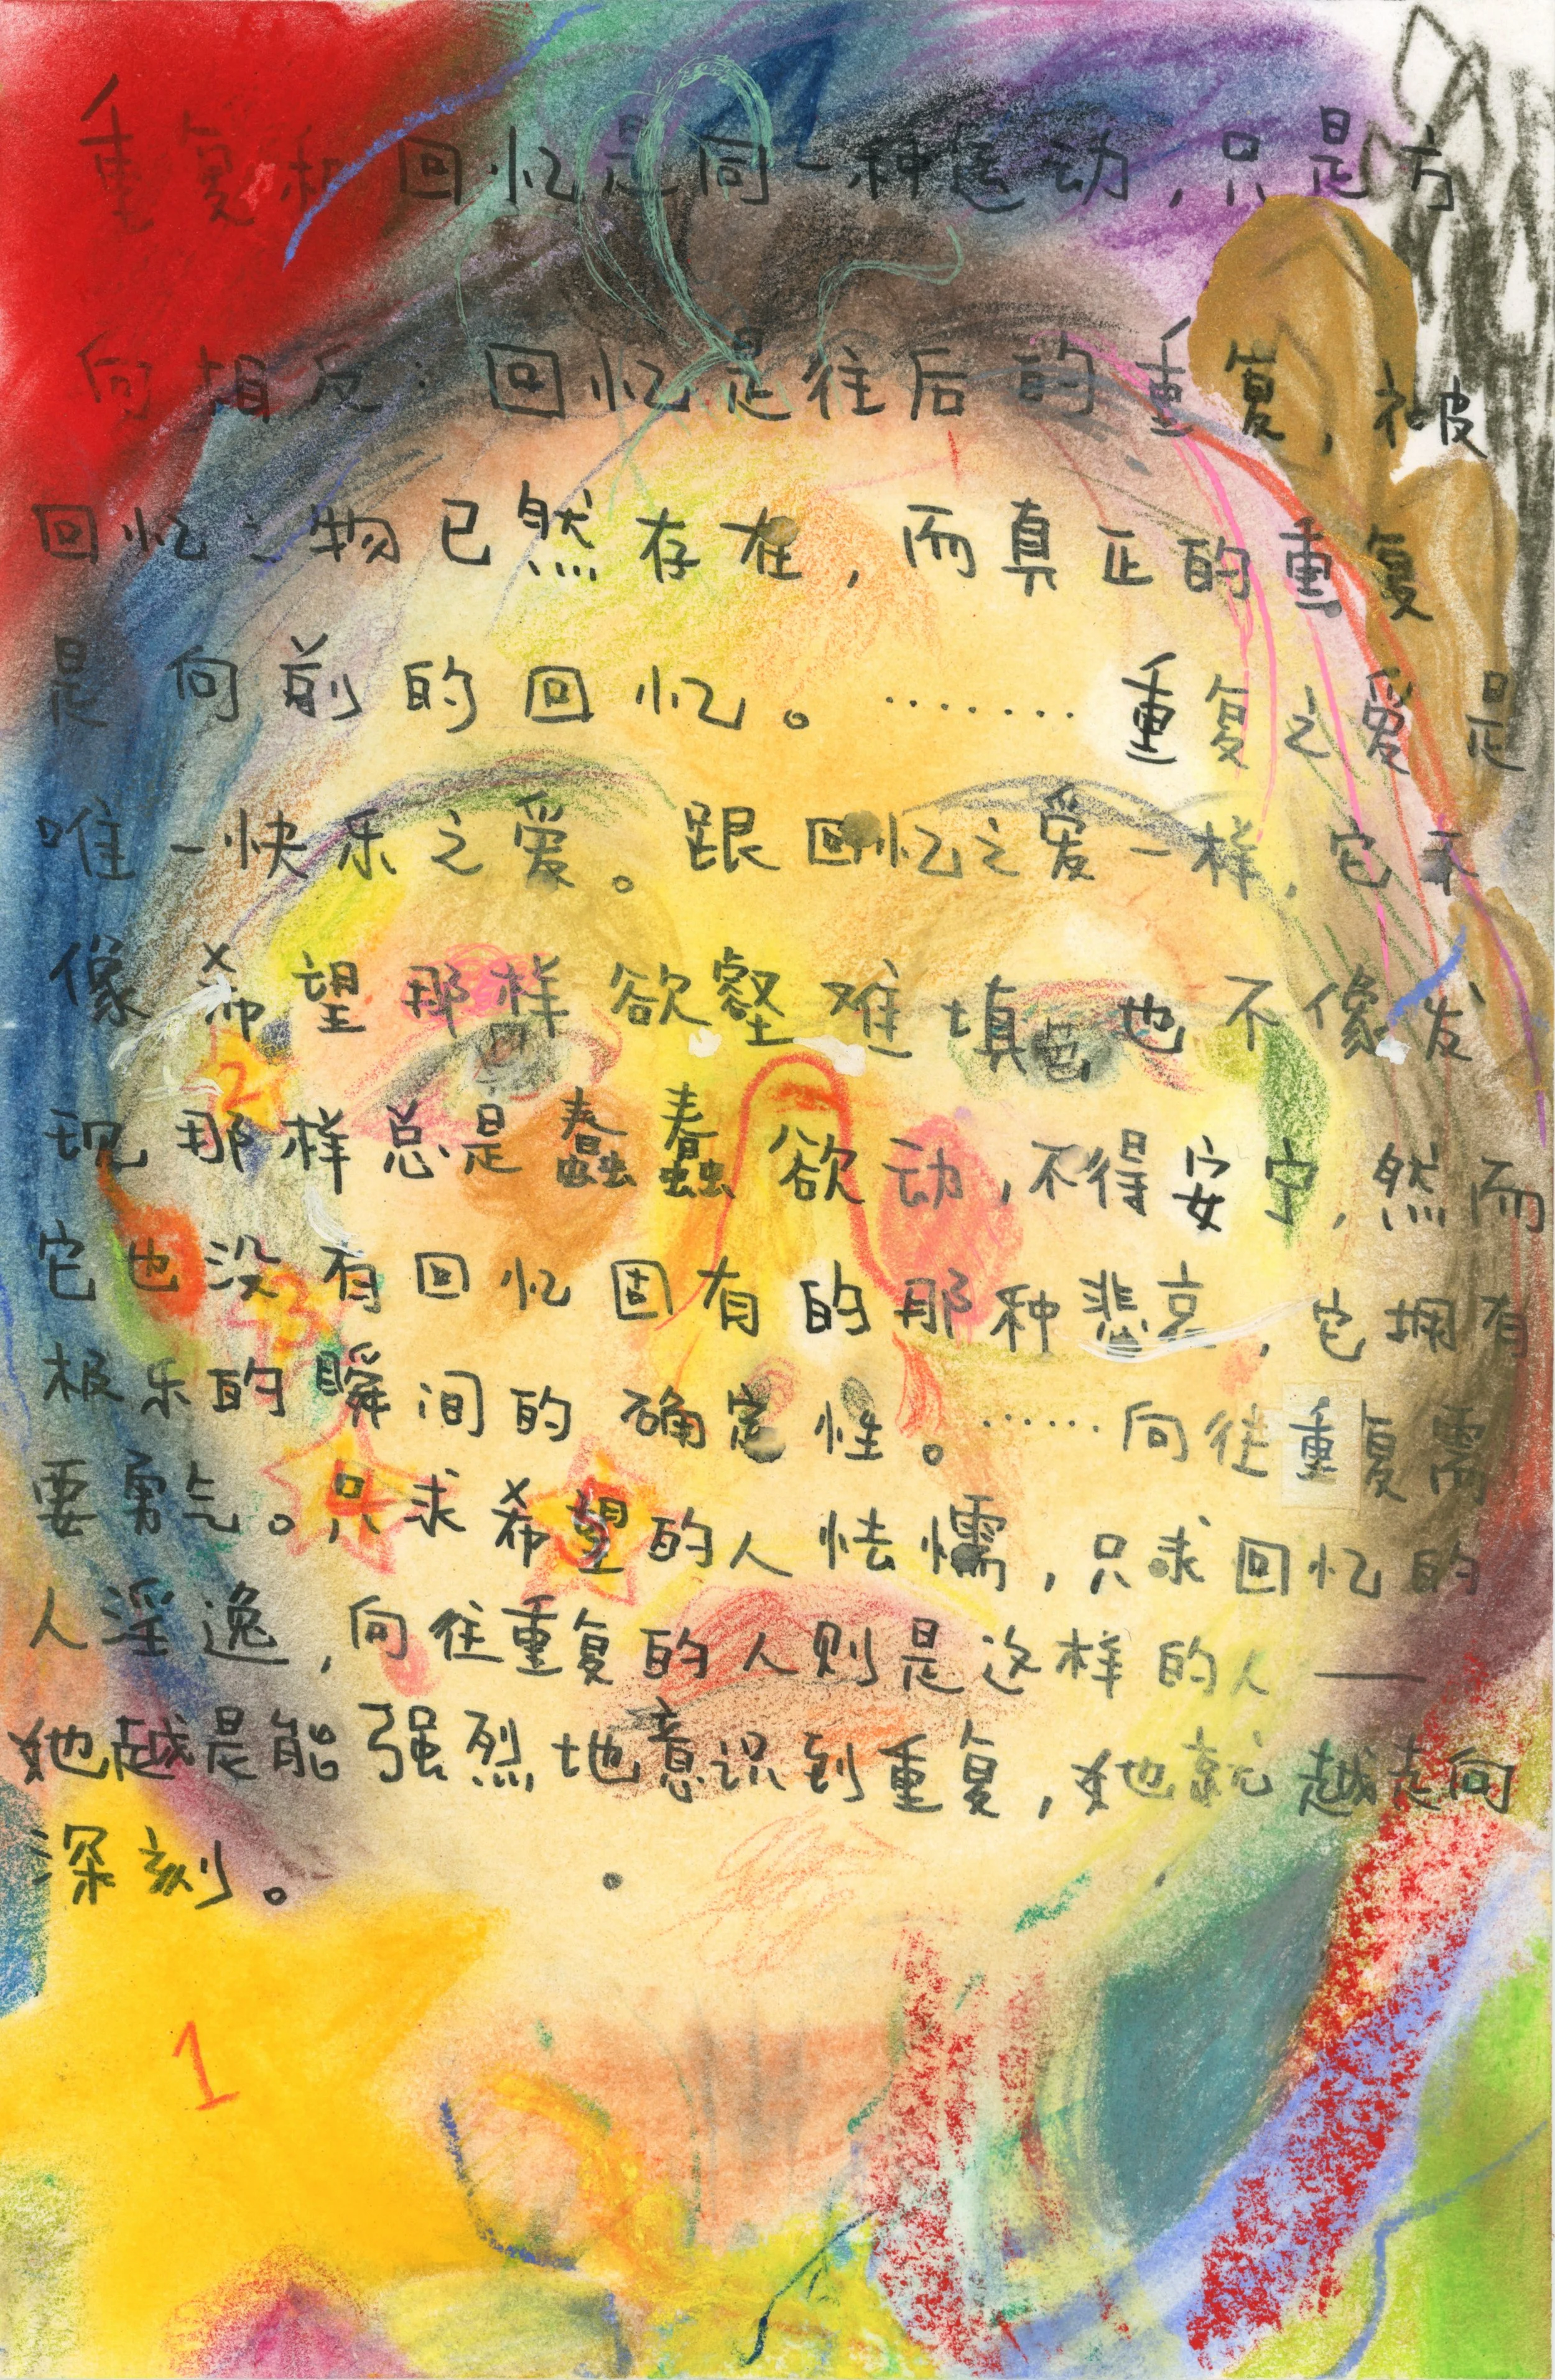 重复和回忆是同一种运动，只是方
向相反：回忆是往后的重复，被
回忆之物已然存在，而真正的重复
是向前的回忆。………重复之爱是
唯一快乐之爱。跟回忆之爱一样，它不
像希望那样欲壑难填，也不像发
现那样总是蠢蠢欲动，不得安宁，然而
它也没有回忆固有的那种悲哀，它拥有
极乐的瞬间的确定性。……向往重复需
要勇气。只求希望的人怯懦，只求回忆的
人淫逸，向往重复的人则是这样的人——
她越是能强烈地意识到重复，她就越走向
深刻。
2
3
4
5
1